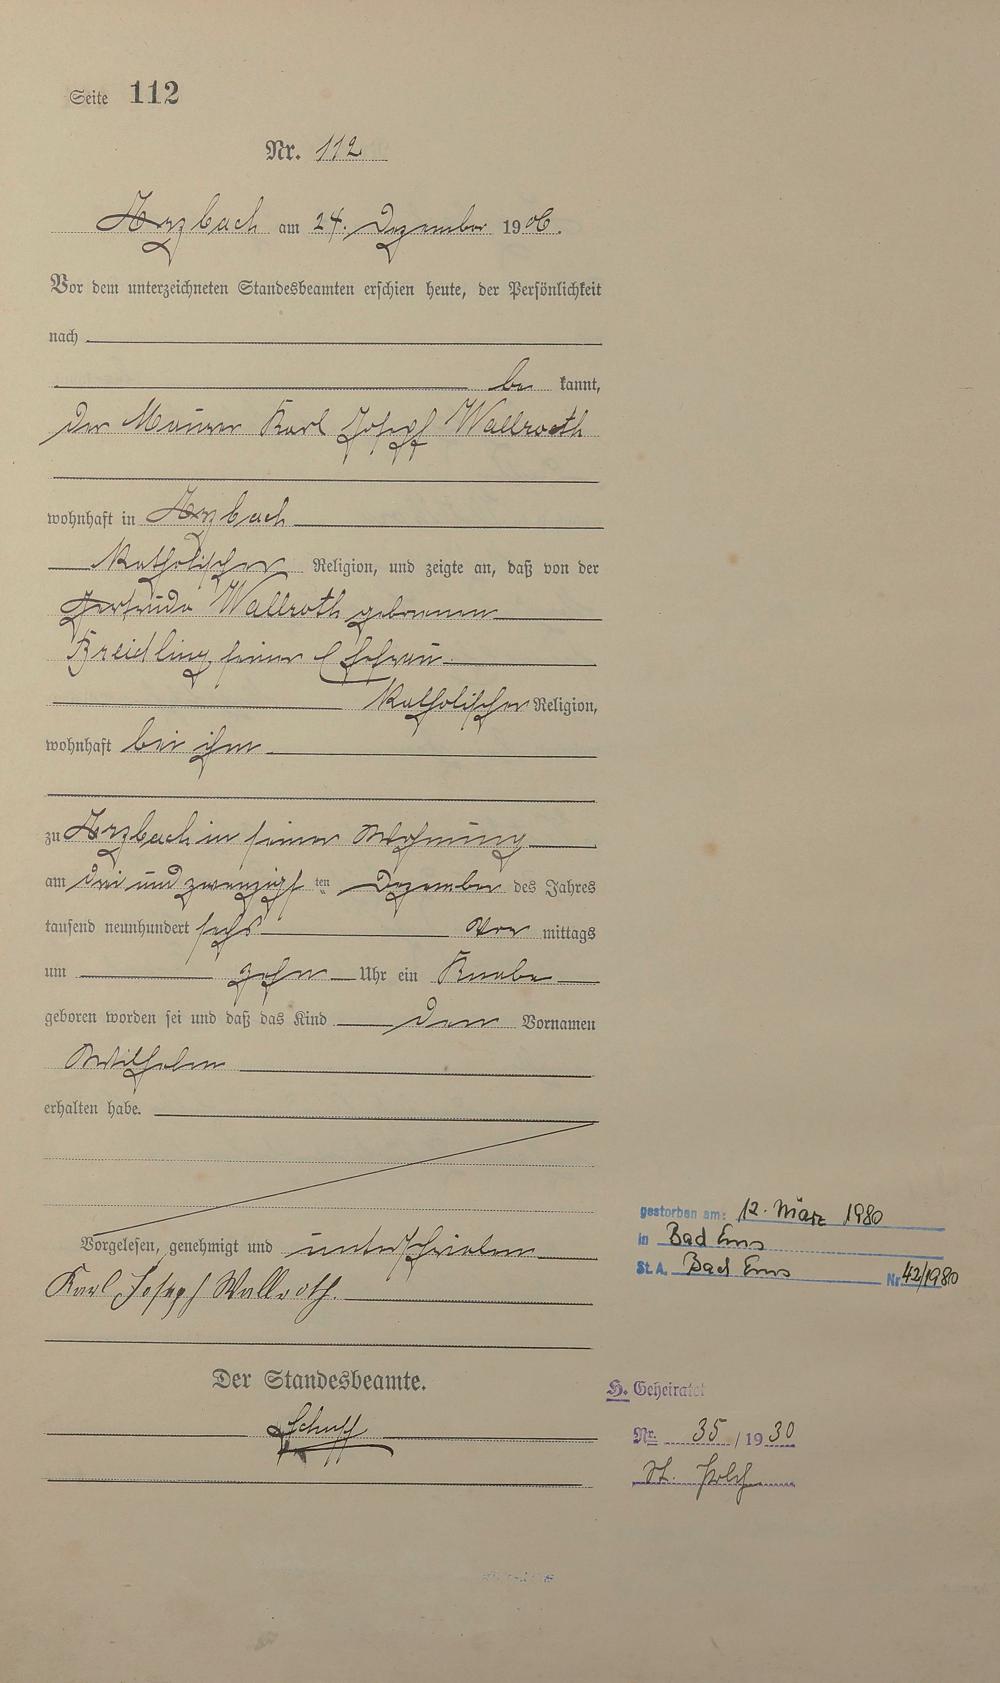 Seite 112
Nr. 112
Arzbach am 24. Dezember 1906.
Vor dem unterzeichneten Standesbeamten erschien heute, der Persönlichkeit
nach
be kannt,
der Maurer Karl Josef Wallroth
wohnhaft in Arzbach
katholischer Religion, und zeigte an, daß von der
Gertrude Wallroth geborenen
Breidling seiner Ehefrau
katholischer Religion,
wohnhaft bei ihm
zu Arzbach in seiner Wohnung
am drei und zwanzigsten Dezember des Jahres
tausend neunhundert sechs Vor mittags
um zehn Uhr ein Knabe
geboren worden sei und daß das Kind den Vornamen
Wilhelm
erhalten habe.
Vorgelesen, genehmigt und unterschrieben
Karl Joseph Wallroth.
Der Standesbeamte.
Schupp
gestorben am: 12. März 1980
in Bad Ems
St. A. Bad Ems Nr. 42/1980
H. Geheiratet
Nr. 35/1930
St.